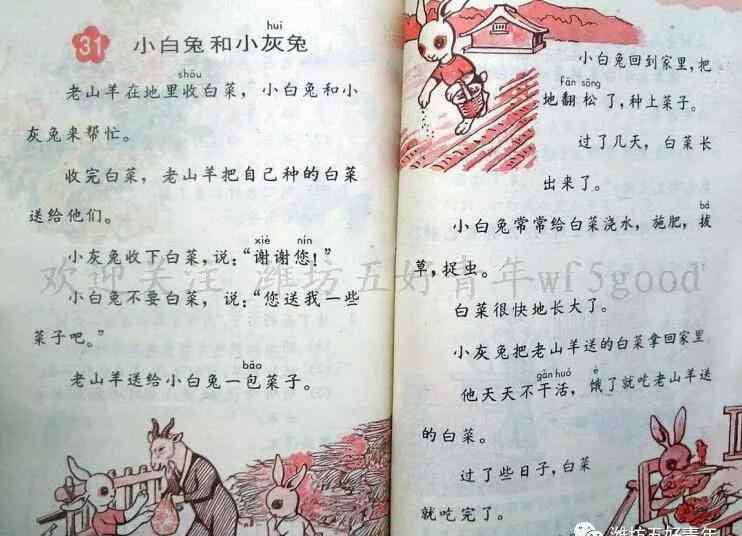 31 小白兔和小灰兔
huī
shōu
老山羊在地里收白菜，小白兔和小
灰兔来帮忙。
收完白菜，老山羊把自己种的白菜
送给他们。
xiè nín
小灰兔收下白菜，说：“谢谢您！”
小白兔不要白菜，说：“您送我一些
菜子吧。”
bāo
老山羊送给小白兔一包菜子。
小白兔回到家里，把
fān sōng
地翻松了，种上菜子。
过了几天，白菜长
出来了。
bá
小白兔常常给白菜浇水，施肥，拔
草，捉虫。
白菜很快地长大了。
小灰兔把老山羊送的白菜拿回家里
gàn huó
他天天不干活，饿了就吃老山羊送
的白菜。
过了些日子，白菜
就吃完了。
欢迎关注 潍坊五好青年wf5good
潍坊五好青年